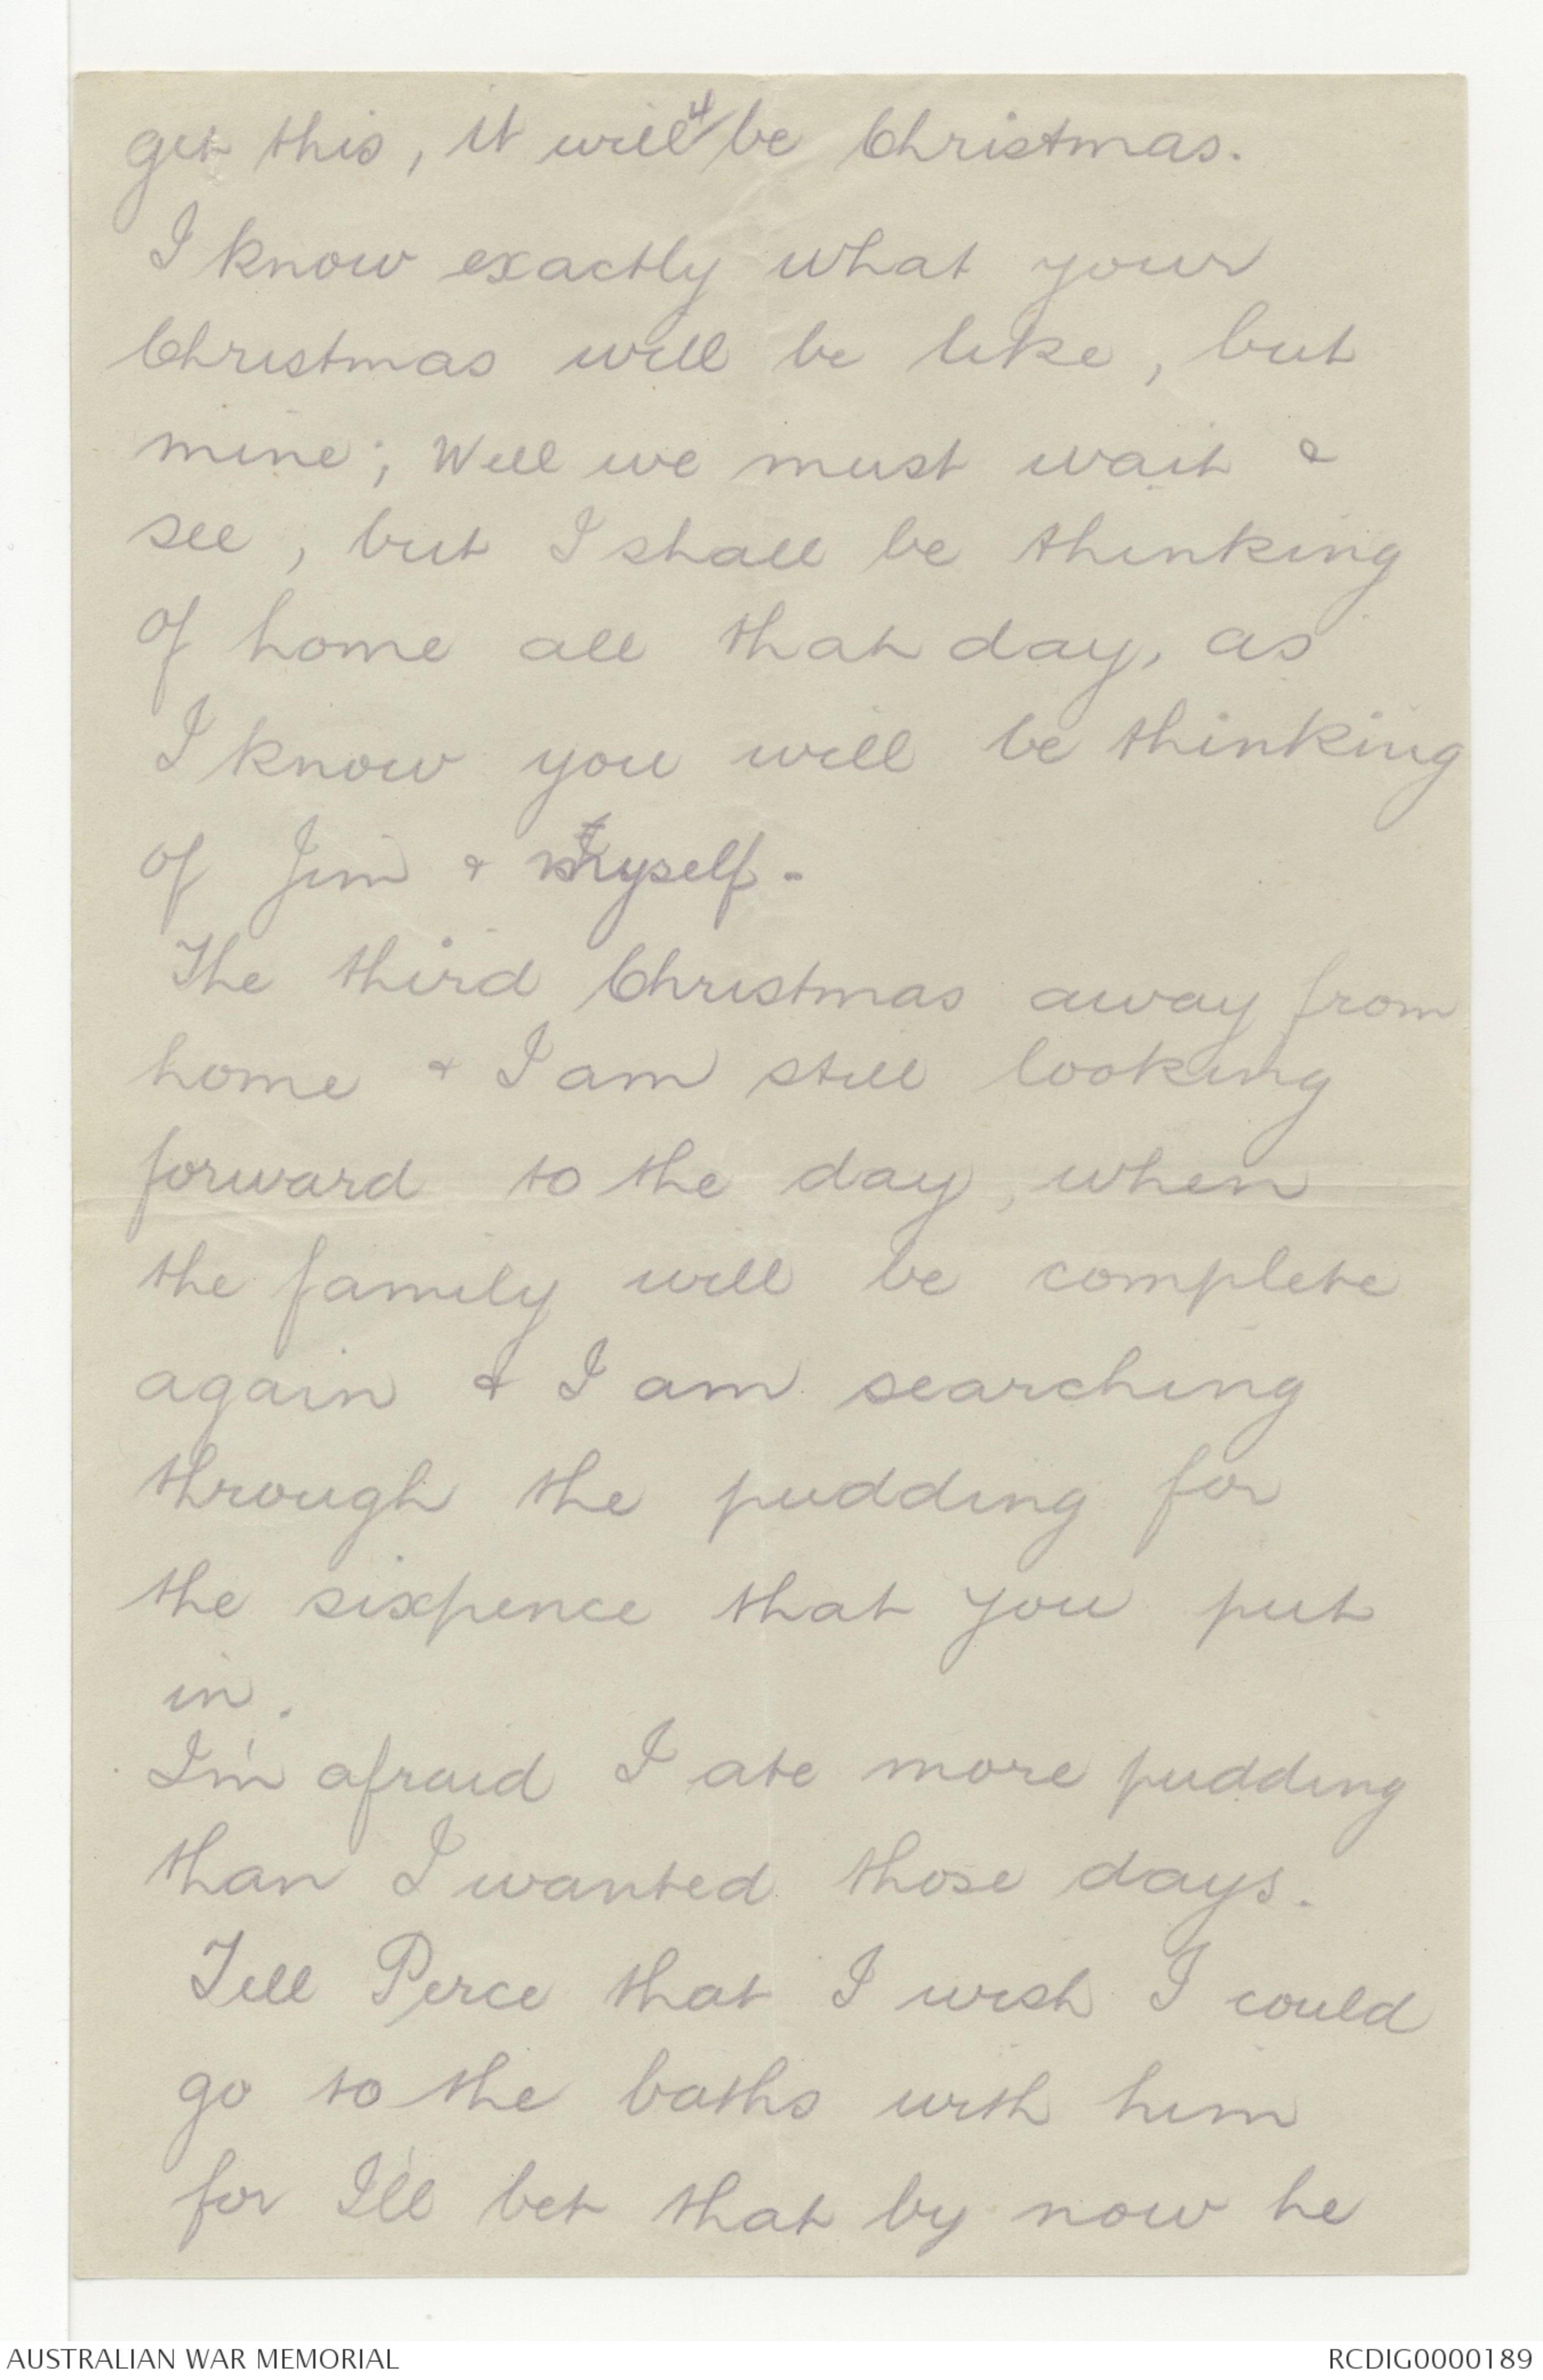 get this, it will 4/ be Christmas.
I know exactly what your
Christmas will be like, but
mine; Well we must wait &
see, but I shall be thinking
of home all that day, as
I know you will be thinking
of Jim & myself.
The third Christmas away from
home & I am still looking
forward to the day, when
the family will be complete
again & I am searching
through the pudding for
the sixpence that you put
in.
I'm afraid I ate more pudding
than I wanted those days.
Tell Perce that I wish I could
go to the baths with him
for I'll bet that by now he
AUSTRALIAN WAR MEMORIAL
RCDIG0000189